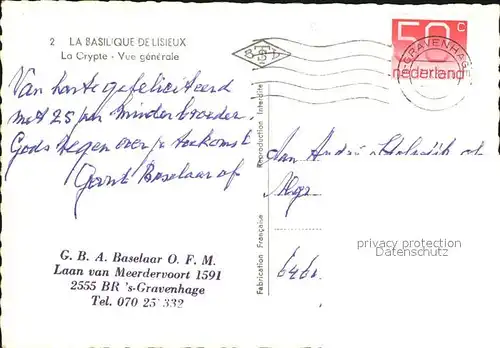 2 LA BASILIQUE DE LISIEUX
La Crypte - Vue générale
Van harte gefeliciteerd
met 25 jaar minderbroeder.
Gods zegen over je toekomst
Gerrit Baselaar ofm
G. B. A. Baselaar O. F. M.
Laan van Meerdervoort 1591
2555 BR 's-Gravenhage
Tel. 070 25 332
Fabrication Française Reproduction Interdite
50 c
nederland
'S-GRAVENHAGE
Aan André
privacy protection
Datenschutz